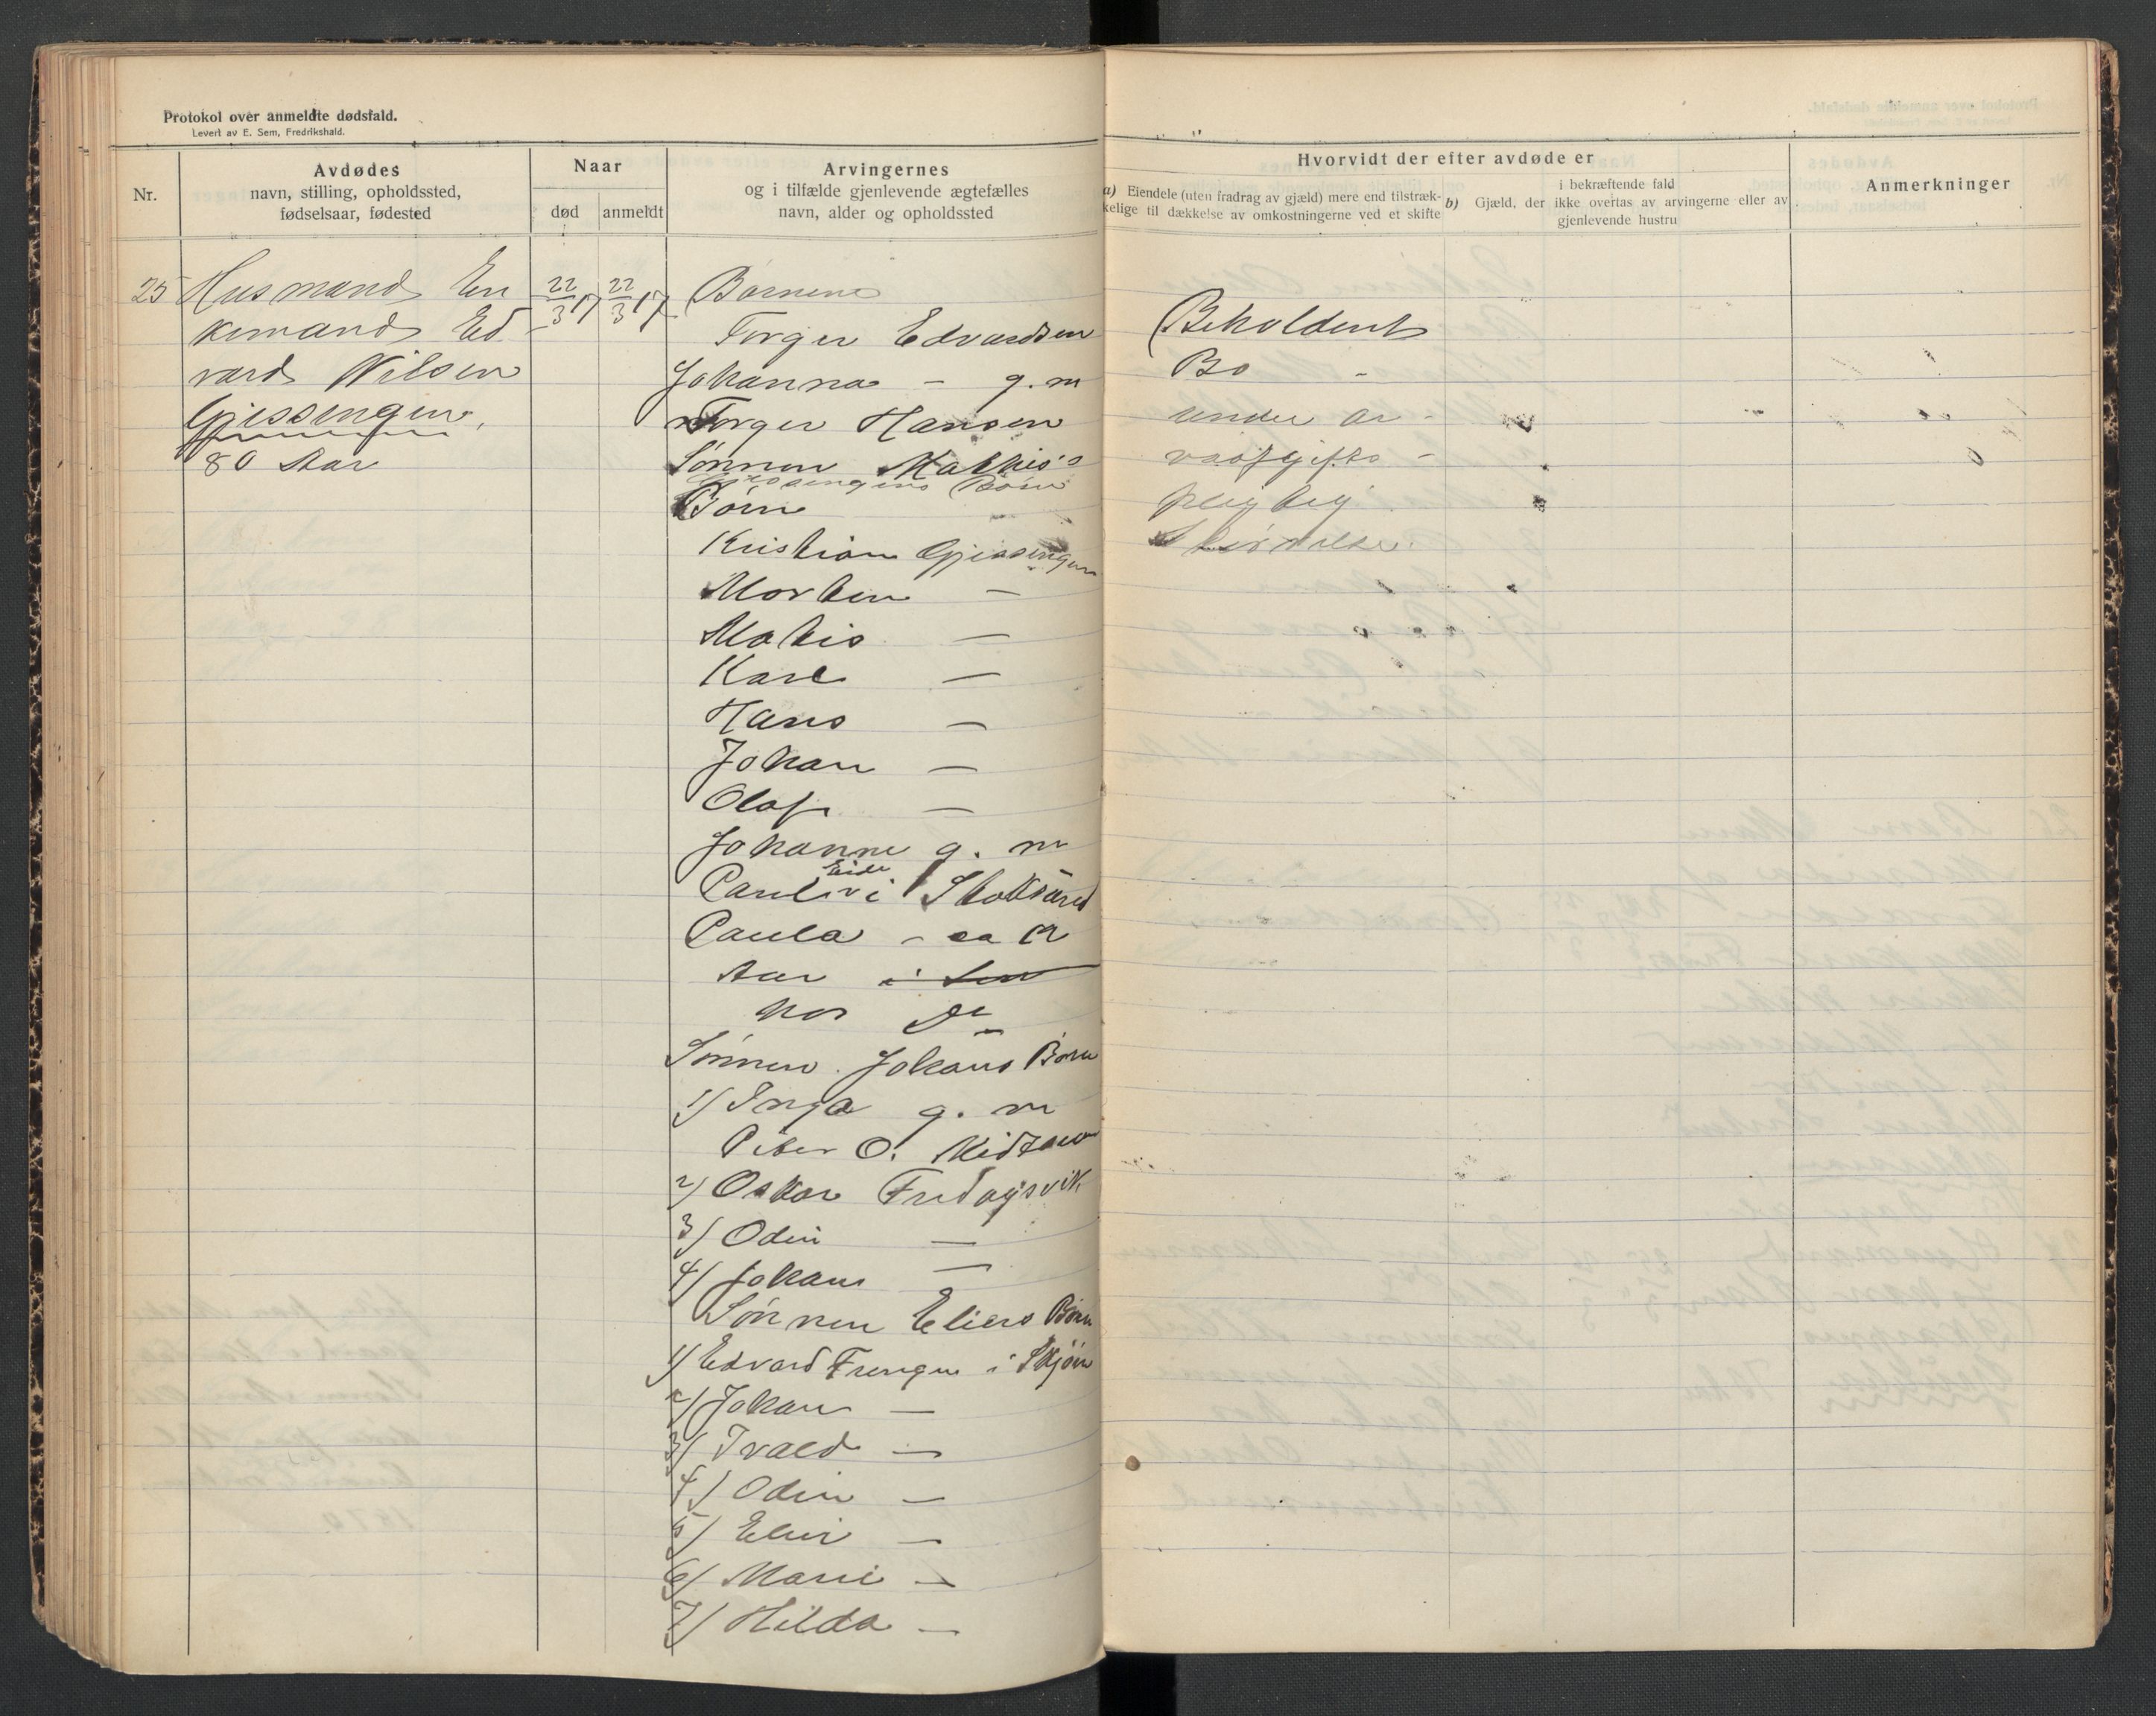 Protokol over anmeldte dødsfald.
Levert av E. Sem, Fredrikshald.
Nr.
Avdødes
navn, stilling, opholdssted,
fødselsaar, fødested
Naar
død
anmeldt
Arvingernes
og i tilfælde gjenlevende ægtefælles
navn, alder og opholdssted
Hvorvidt der efter avdøde er
a) Eiendele (uten fradrag av gjæld) mere end tilstræk-
kelige til dækkelse av omkostningerne ved et skifte
b) Gjæld, der
i bekræftende fald
ikke overtas av arvingerne eller av
gjenlevende hustru
Anmerkninger
25 Husmand En
kemand Ed
vard Nilsen
Gjessingen,
80 Aar
22/3 17
22/3 17
Børnene
Torger Edvardsen
Johanna - g. m
Torger Hansen
Sønnen Mathis's
Gjessingens Børn
Børn
Kristian Gjessingen
Morten -
Matis -
Karl -
Hans -
Johan -
Olaf -
Johanne g. m
Eide
Paul i Stoksund
Paula - ca 12
Aar i
hos
Sønnen Johans Børn
1) Inga g. m
Peter O.
2) Oskar Fredagsvik
3) Odin -
4) Johan -
Sønnen Eliers Børn
1) Edvard Frengen i Skjørn
2) Johan -
3) Ivald -
4) Odin -
5) Elier -
6) Marie -
7) Hilda -
Beholdent
Bo -
under ar-
vsafgifts-
pligtig
Størrelse.